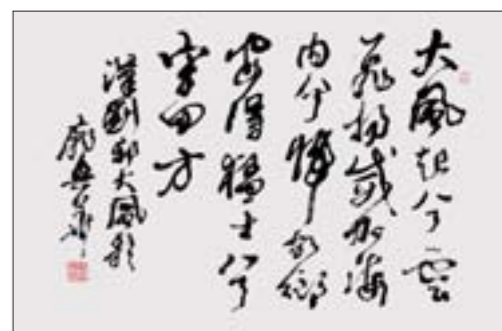 大風起兮雲
飛揚威加海
内兮歸故鄉
安得猛士兮
守四方
漢劉邦大風歌